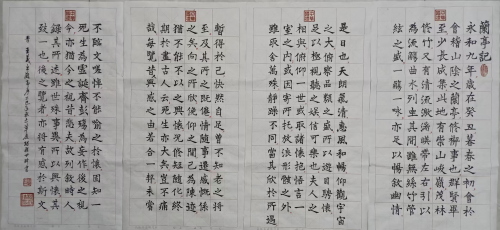 蘭亭記
永和九年歲在癸丑暮春之初會於
會稽山陰之蘭亭修禊事也群賢畢
至少長咸集此地有崇山峻嶺茂林
修竹又有清流激湍暎帶左右引以
為流觴曲水列坐其次雖無絲竹管
絃之盛一觴一詠亦足以暢敘幽情
是日也天朗氣清惠風和暢仰觀宇宙
之大俯察品類之盛所以遊目騁懷
足以極視聽之娛信可樂也夫人之
相與俯仰一世或取諸懷抱悟言一
室之內或因寄所托放浪形骸之外
雖取舍萬殊靜躁不同當其欣於所遇
暫得於己快然自足曾不知老之將
至及其所之既倦情隨事遷感慨係
之矣向之所欣俛仰之間已為陳迹
猶不能不以之興懷況修短隨化終
期於盡古人云死生亦大矣豈不痛
哉每覽昔人興感之由若合一契未嘗
不臨文嗟悼不能喻之於懷固知一
死生為虛誕齊彭殤為妄作後之視
今亦猶今之視昔悲夫故列敘時人
錄其所述雖世殊事異所以興懷其
致一也後之覽者亦將有感於斯文